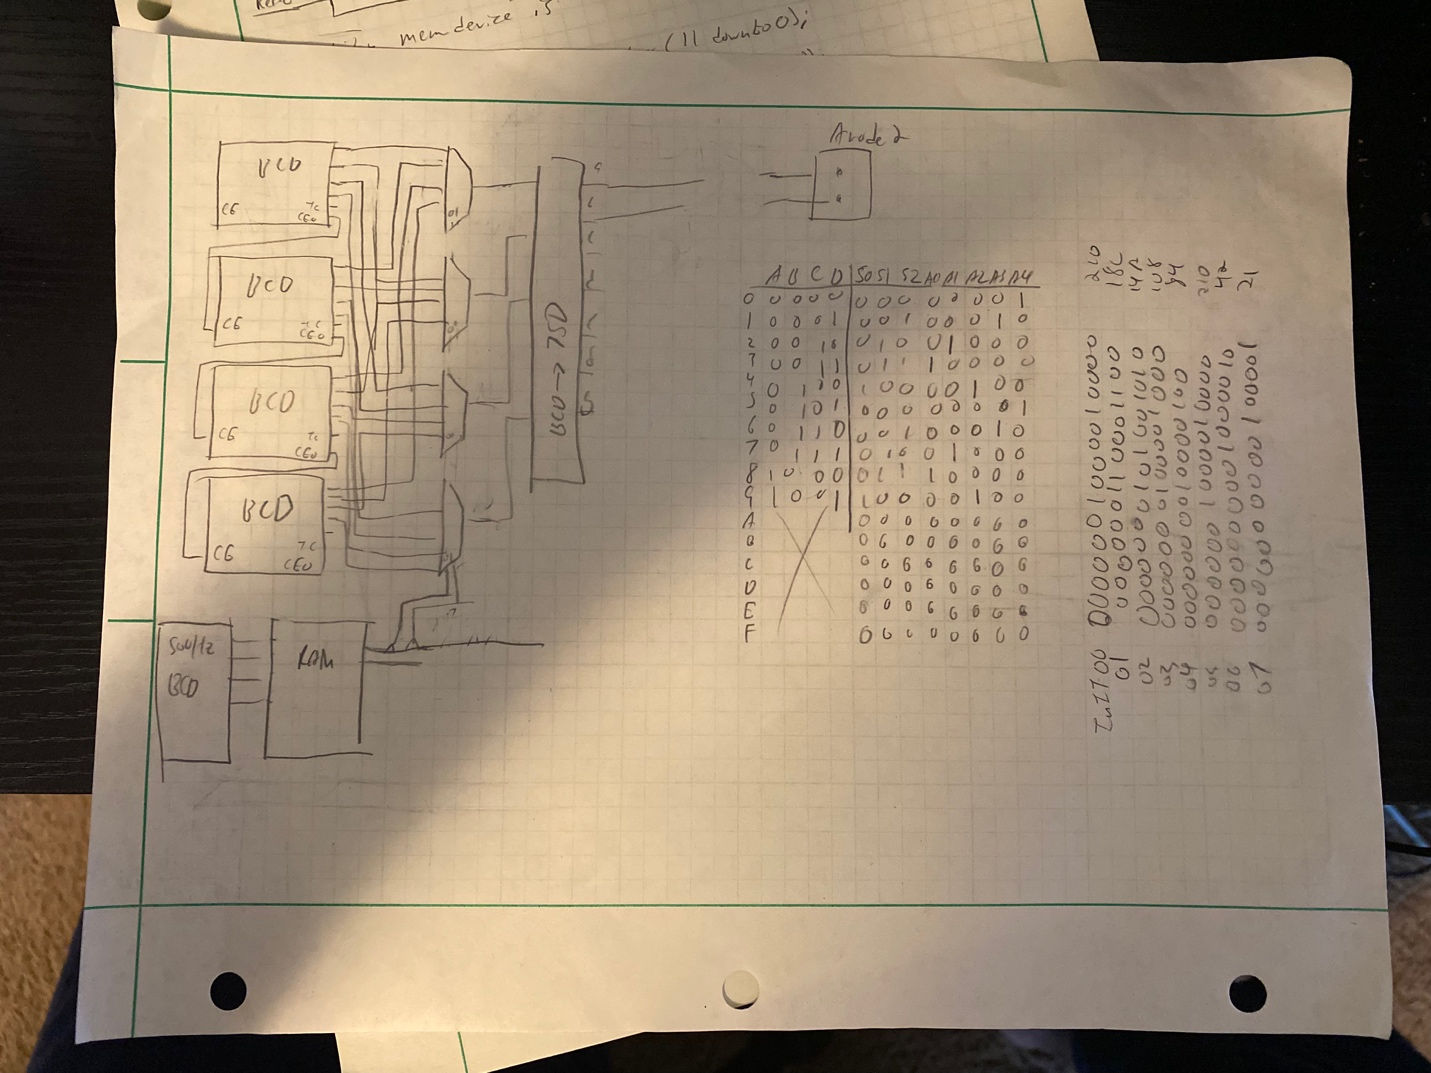 mem device is
(11 downto 0);
BCD
CE
TC
CEO
BCD
CE
TC
CEO
BCD
CE
TC
CEO
BCD
CE
TC
CEO
BCD → 7SD
500Hz
BCD
RAM
Anode 2
A B C D S0 S1 S2 A0 A1 A2 A3 A4
0 0 0 0 0 0 0 0 0 0 0 0 1
1 0 0 0 1 0 0 1 0 0 0 1 0
2 0 0 1 0 0 1 0 0 1 0 0 0
3 0 0 1 1 0 1 1 1 0 0 0 0
4 0 1 0 0 1 0 0 0 0 1 0 0
5 0 1 0 1 0 0 0 0 0 0 0 1
6 0 1 1 0 0 0 1 0 0 0 1 0
7 0 1 1 1 0 1 0 0 1 0 0 0
8 1 0 0 0 0 1 1 1 0 0 0 0
9 1 0 0 1 1 0 0 0 0 1 0 0
A 0 0 0 0 0 0 0 0
B 0 0 0 0 0 0 0 0
C 0 0 0 0 0 0 0 0
D 0 0 0 0 0 0 0 0
E 0 0 0 0 0 0 0 0
F 0 0 0 0 0 0 0 0
INIT 00 0000001000010000 210
01 0000000110001100 18C
02 0000000101001010 14A
03 0000000100001000 108
04 0000000010000100 84
05 0000001000010000 210
06 0000000001000010 42
07 0000000000100001 21